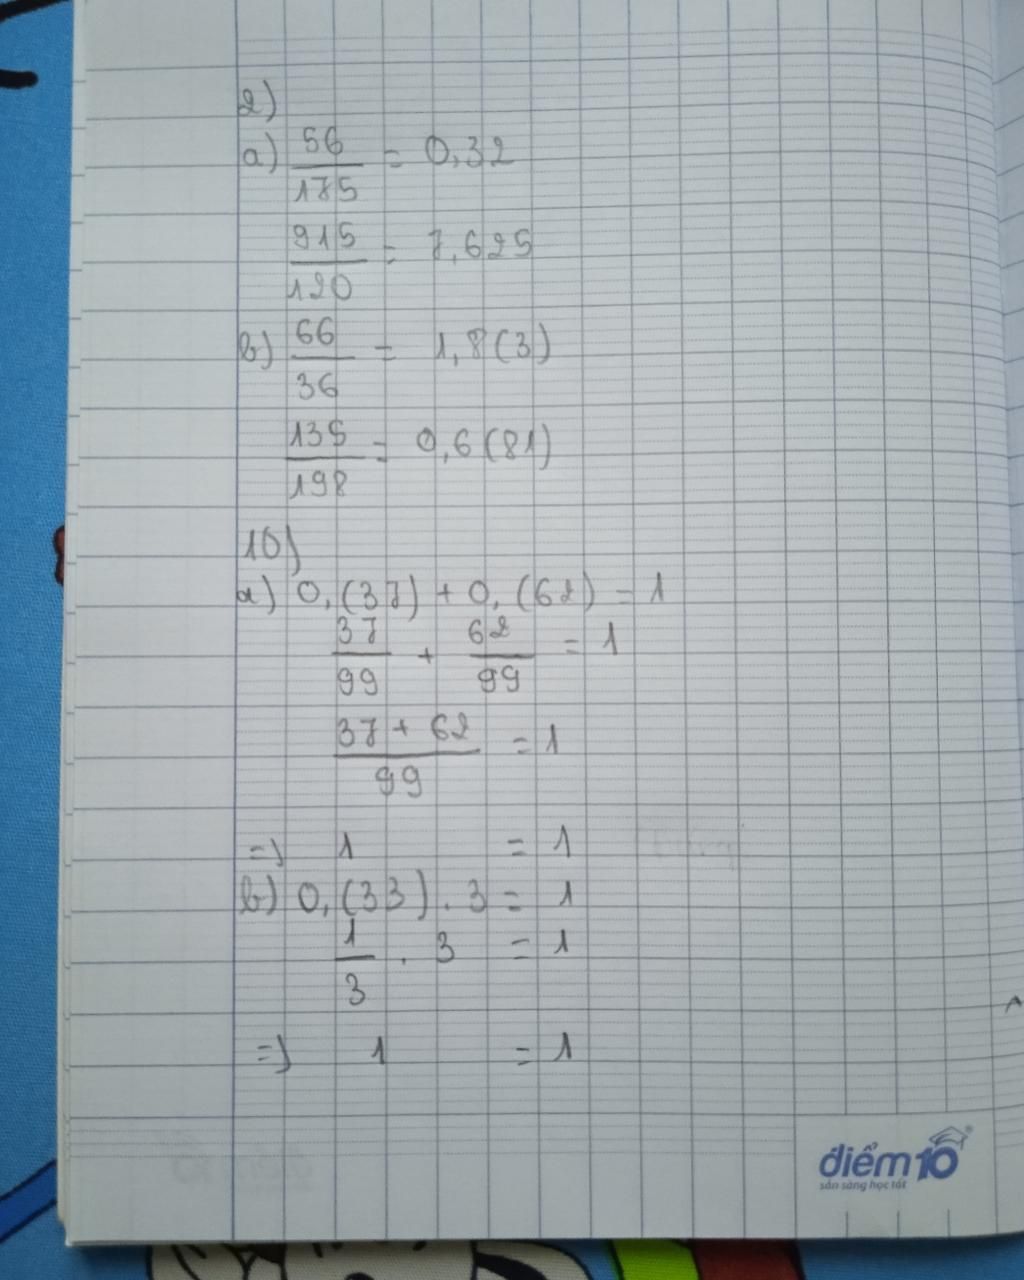 2)
a) 56/175 = 0,32
915/120 = 7,625
b) 66/36 = 1,8(3)
135/198 = 0,6(81)
10)
a) 0,(37) + 0,(62) = 1
37/99 + 62/99 = 1
37 + 62/99 = 1
=) 1 = 1
b) 0,(33) . 3 = 1
1/3 . 3 = 1
=) 1 = 1
điểm10
sẵn sàng học tốt